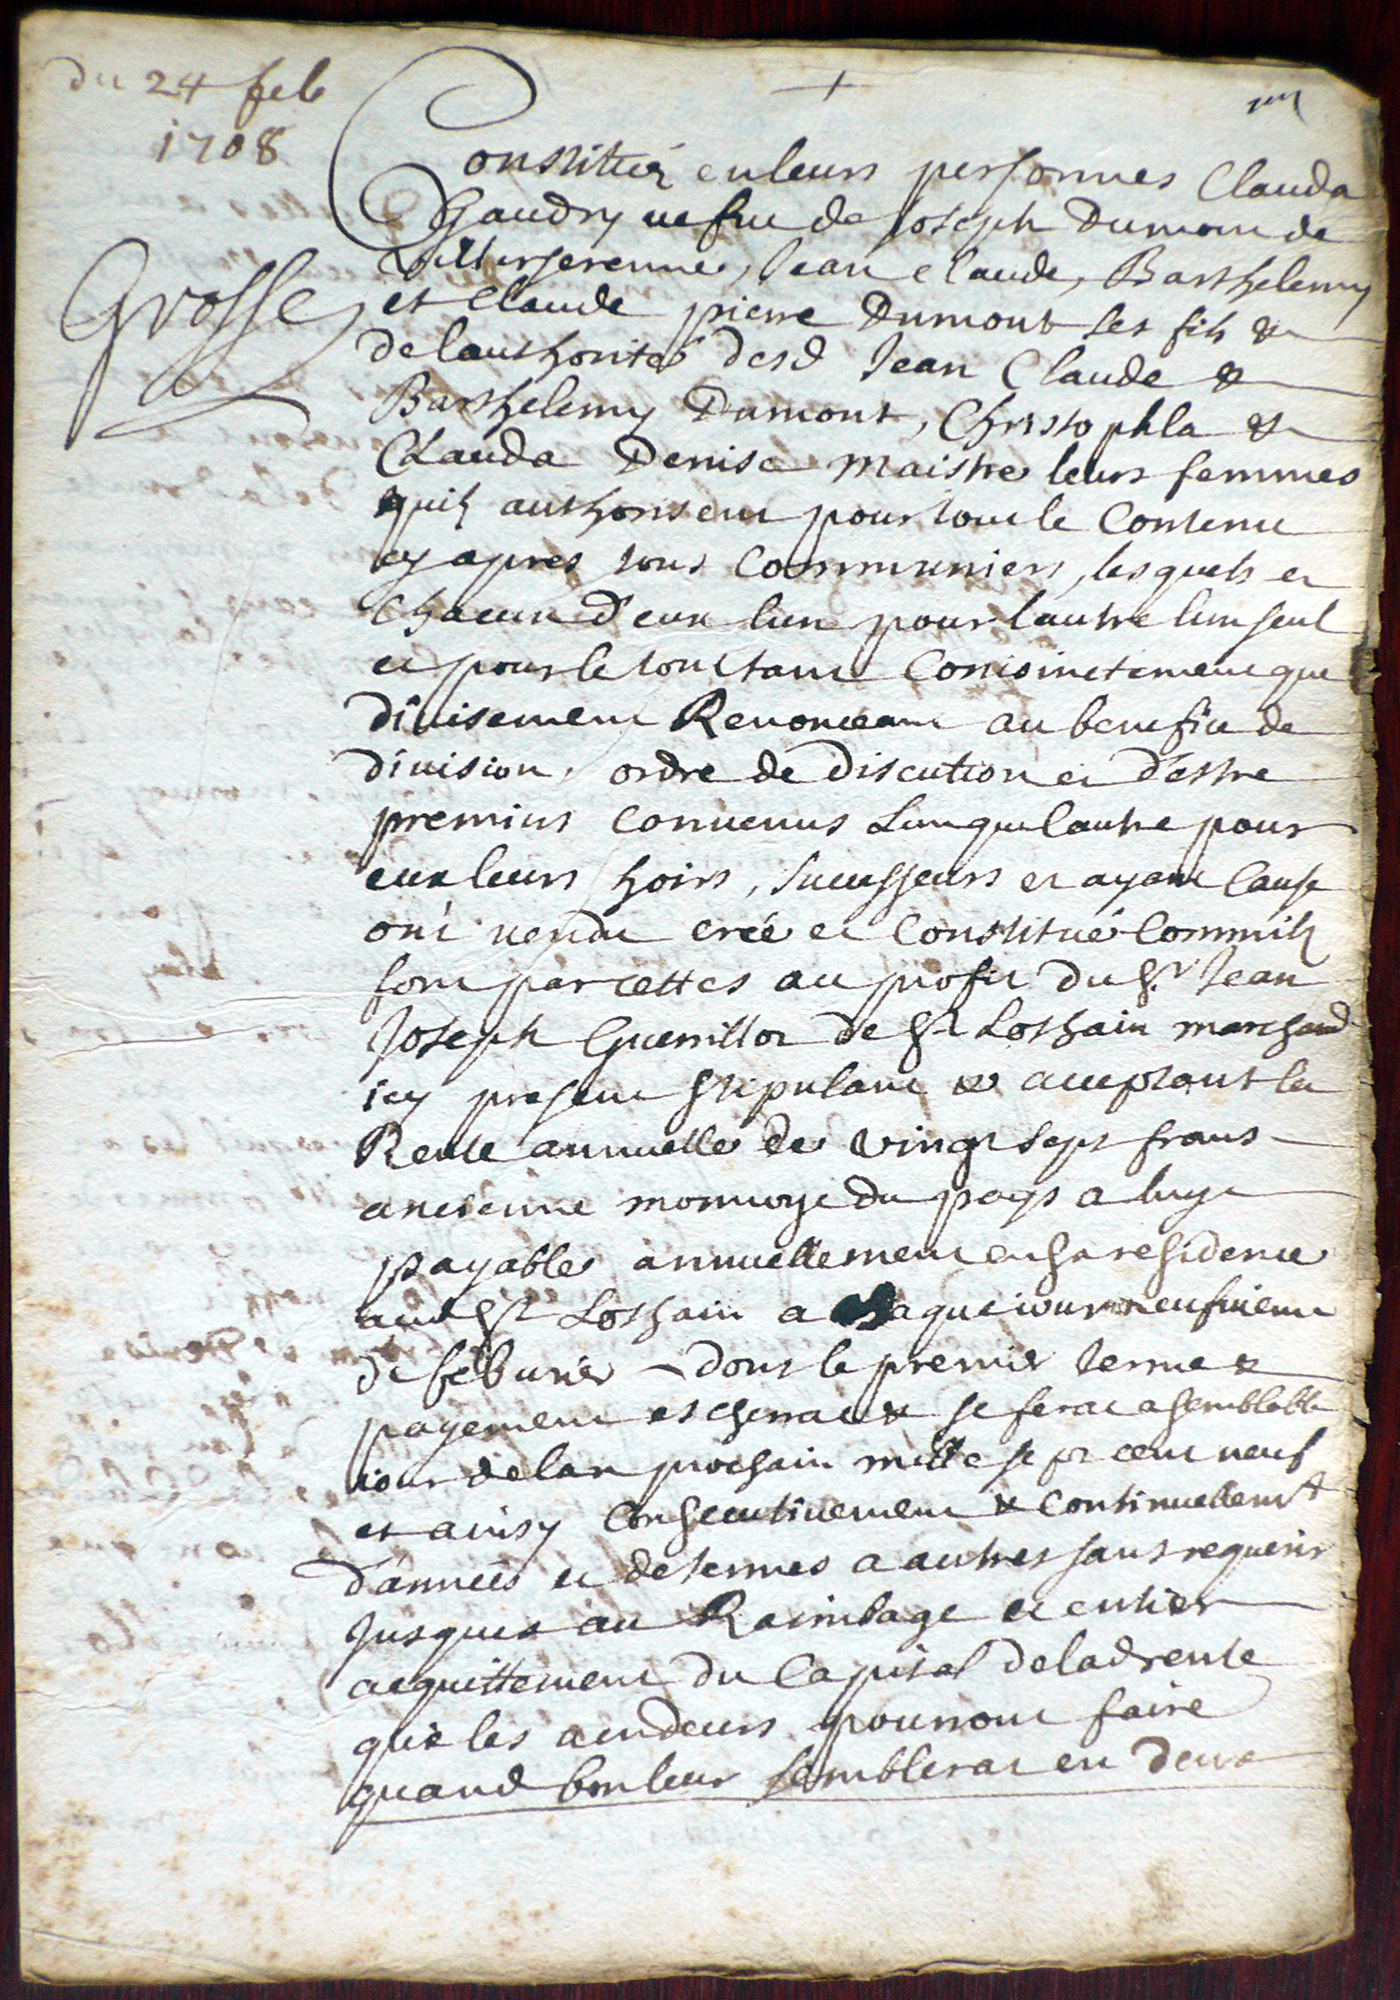 du 24 feb
1708
Grosse
Constituéz en leurs personnes Clauda
Gaudry vefue de Joseph Dumont de
Villerserenne, Jean Claude, Barthelemy
et Claude pierre Dumont ses fils &
de lauthorité desd Jean Claude &
Barthelemy Dumont, Christophla &
Clauda Denisa maistre leurs femmes
quilz authorisent pour tout le Contenu
cy apres tous Communiers, lesquels et
Chacun d'eux lun pour lautre lun seul
et pour le tout tant Conioinctement que
diuisement Renonceant au benefice de
diuision, ordre de discution et d'estre
premiers conuenus Lun que lautre pour
eux leurs hoirs, successeurs et ayant Cause
ont vendu creé et Constitué Comm'ilz
font par cettes au profit du Sr. Jean
Joseph Guerrillot de St Lothain marchand
icy present stipulant & acceptant la
Rente annuelle de vingt sept frans
ancienne monnoye du pays a luy
payable annuellement en sa residence
aud St Lothain a chaque iour neufuieme
de feburier dont le premier terme &
payement escherrat & se ferat a semblable
iour de lan prochain mille sept cent neuf
et ainsy Consecutiuement & Continuellemt
d'années et de termes a autres sans requerir
Jusques au Raimbage et entier
acquittement du Capital de lad rente
que les vendeurs pourront faire
quand bon leur semblerat en deux